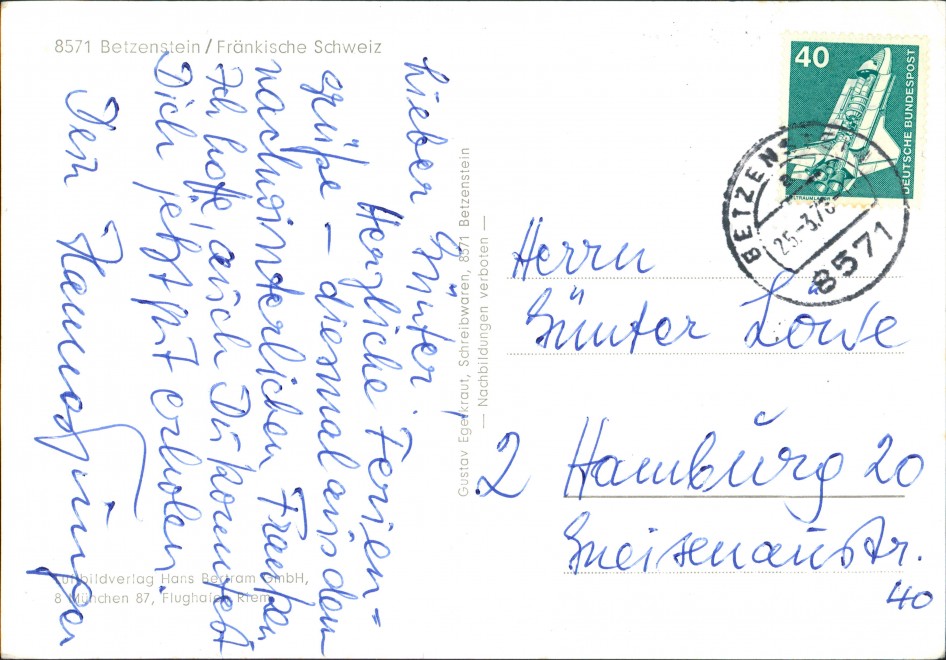 8571 Betzenstein / Fränkische Schweiz
Lieber Günter!
Herzliche Ferien=
grüße – diesmal aus dem
nachwinterlichen Franken
Ich hoffe, auch Du konntest
Dich jetzt mit erholen.
Dein
Gustav Egerkraut, Schreibwaren, 8571 Betzenstein
— Nachbildungen verboten —
Luftbildverlag Hans Bertram GmbH,
8 München 87, Flughafen Riem
40
DEUTSCHE BUNDESPOST
WELTRAUMLABOR
BETZENS
25.-3.76
8571
Herrn
Günter Löwe
2 Hamburg 20
Gneisenaustr.
40